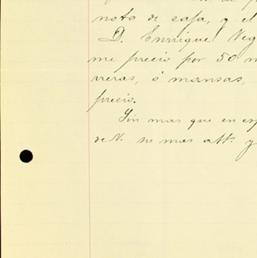 nota de safa, y el
D. Enrrique Veg
me precio por 50 n
rreras, ó mansas,
precio.
Sin mas que en esp
de V. su mas att. y